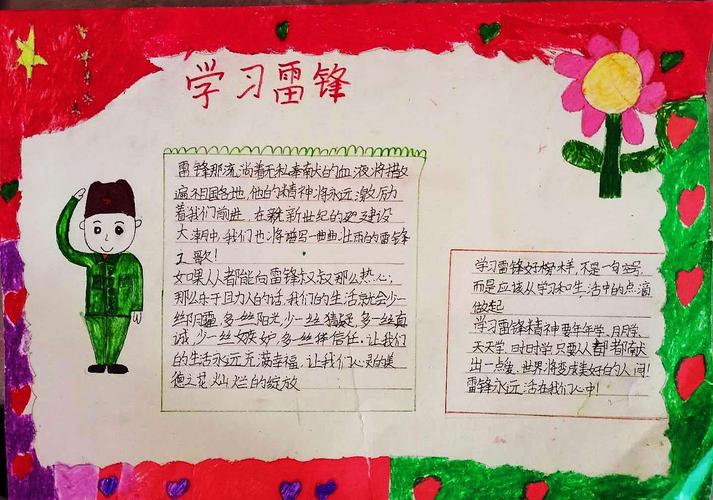 学习雷锋
雷锋那流淌着无私奉献的血液将播散
遍祖国各地,他的精神将永远激励
着我们前进,在新世纪的建设
大潮中,我们也将谱写一曲曲壮丽的雷锋
之歌!
如果人人都能向雷锋叔叔那么热心;
那么乐于助人的话,我们的生活就会少一
丝阴霾,多一丝阳光,少一丝猜疑,多一丝真
诚,少一丝嫉妒,多一丝信任.让我们
的生活永远充满幸福,让我们心灵的美
德之花灿烂的绽放
学习雷锋好榜样,不是一句空号
而是应该从学习和生活中的点滴
做起
学习雷锋精神要年年学、月月学、
天天学、时时学只要人都都献
出一点爱,世界将变成美好的人间!
雷锋永远活在我们心中!